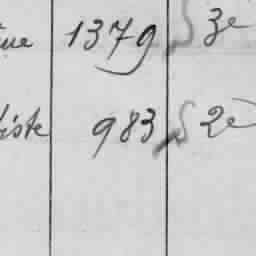 1379 3e
iste 983 2e